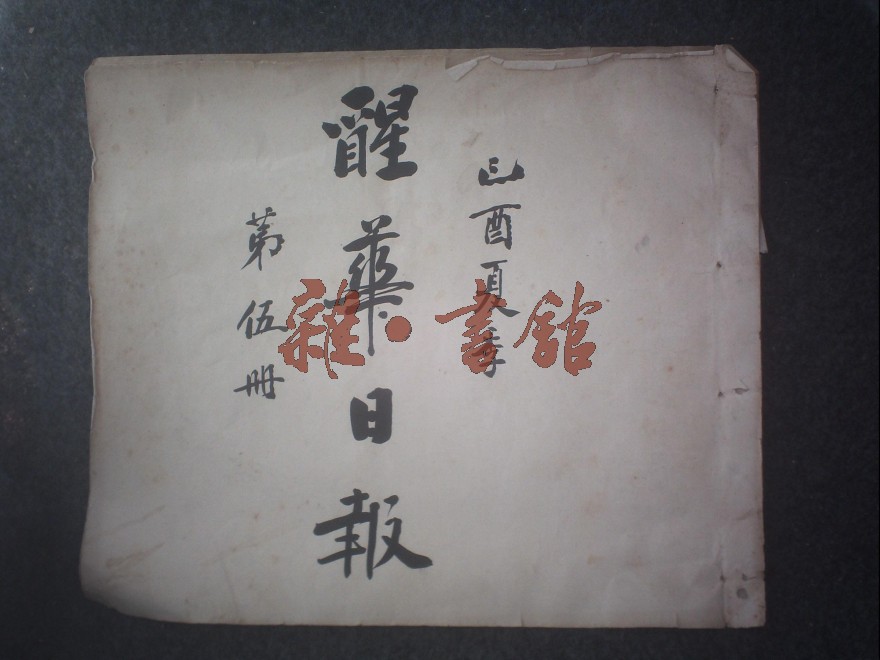 己酉夏季
醒華日報
第伍冊
雜·書館